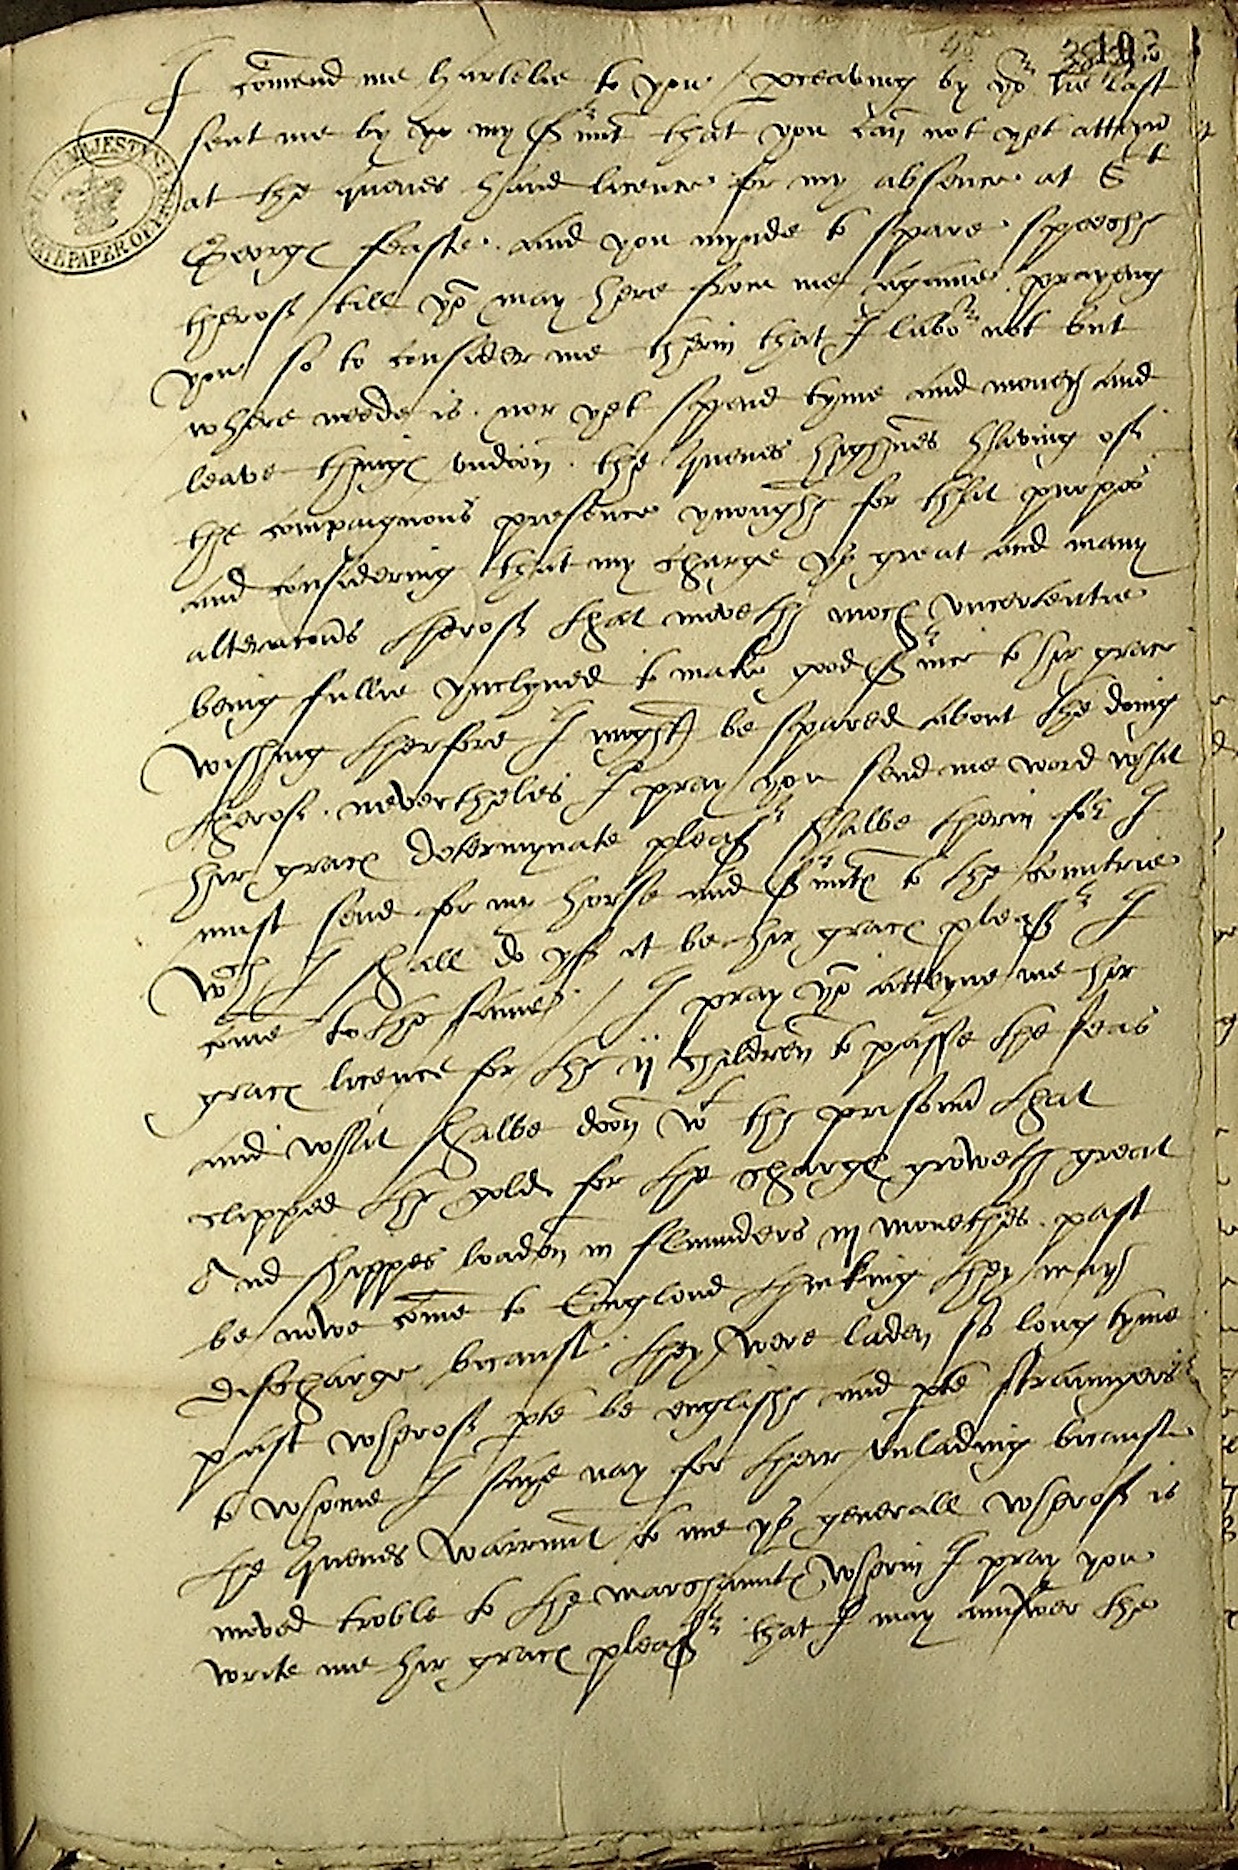 I com̄end me hartelie to you / pceaving by yor lr̄e last
sent me by yo my s̄runt that you can not yet atteyn
at the quenes hand licence for my absence at St
George feaste. and you mynde to spare speche
therof till yo may here from me againe. prayeng
you so to consider me therin that I labor not but
where neede is. nor yet spend tyme and money and
leave things undoon. the quenes highnes having of
the compaignons presence ynoughe for that purpos
and considering that my charge ys great and many
alteracons therof that moveth moch uncertentie
being fullie ynclyned to make good s̄rvice to hir grace
Wishing therfore I might be spared about the doing
therof. nevertheles I pray you send me word what
hir graces determynate pleasr shalbe therin for I
must send for my horse and s̄runtes to the countrie
Wch I shall do yf it be hir graces pleasr I
come to the same / I pray yo atteyne me hir
graces licence for the ij children to passe the seas
and what shalbe doon wt the prisoner that
clipped the gold for the charge groweth great
And shippes loaden in flaunders iij monethes past
be nowe come to Englond thinking they may
discharge bicause they were laden so long tyme
past wherof pte be englishe and pte straungers
to whome I saye nay for their unlading bicause
the quenes warraunt to me ys generall wherof is
moved troble to the marchauntes wherin I pray you
write me hir graces pleasr that I may answer the